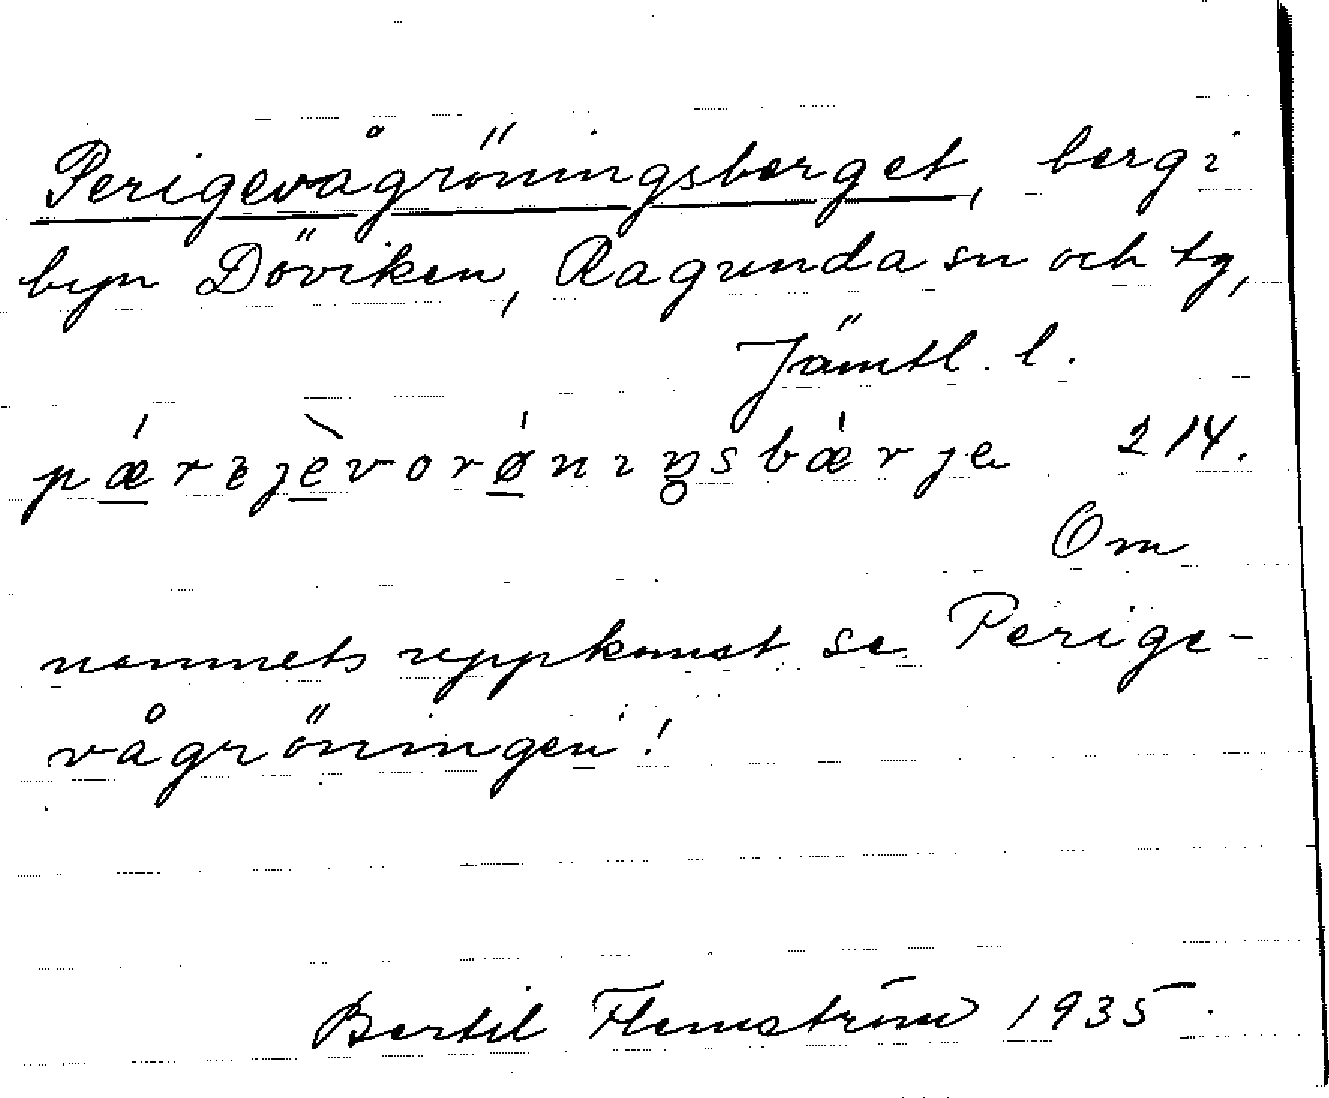 Perigevågröningsberget, berg i
byn Döviken, Ragunda sn och tg,
Jämtl. l.
pǽrɪjèvorǿnɪŋ̥sbǽrje 214.
Om
namnets uppkomst se Perige-
vågröningen!
Bertil Flemström 1935.